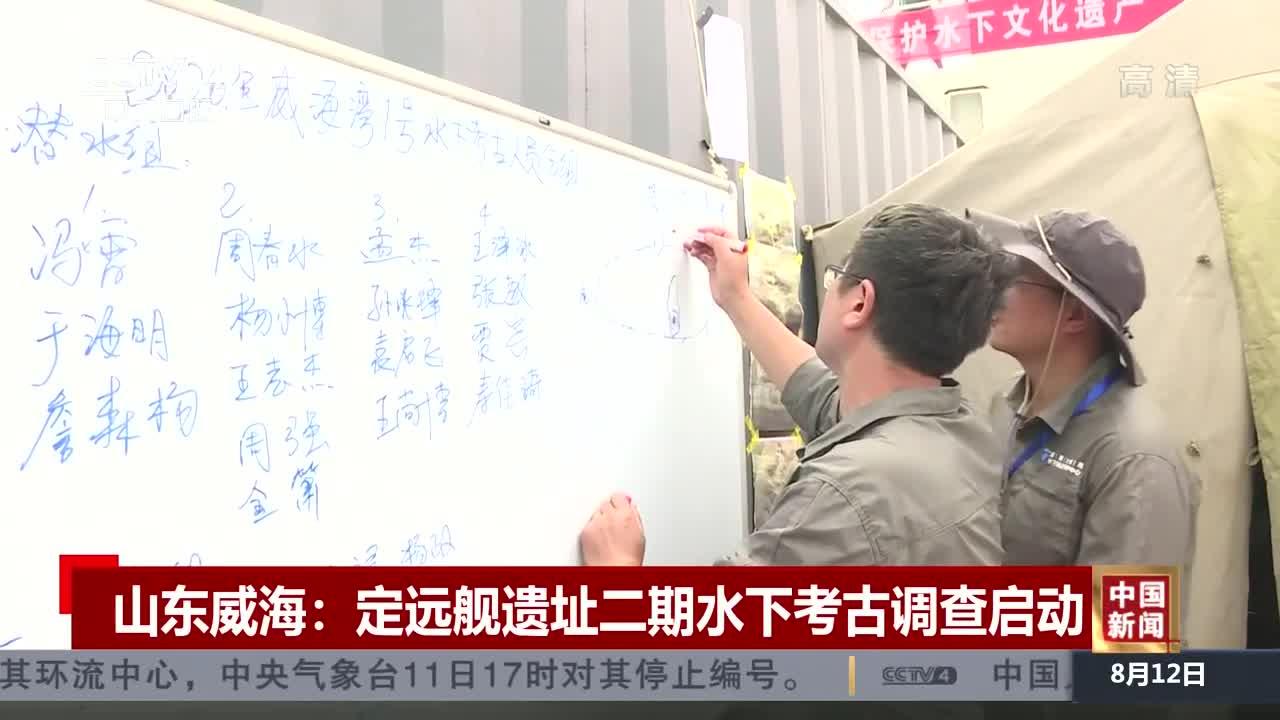 保护水下文化遗产
高清
威海湾1号水下考古人员分组
潜水组:
1 2 3 4
冯雷 周春水 孟杰 王泽冰
于海明 杨小博 张敏
詹森杨 王志杰 袁启飞 贾芸
周强 王尚博
金箫
山东威海：定远舰遗址二期水下考古调查启动
中国新闻
其环流中心，中央气象台11日17时对其停止编号。 CCTV4 中国
8月12日